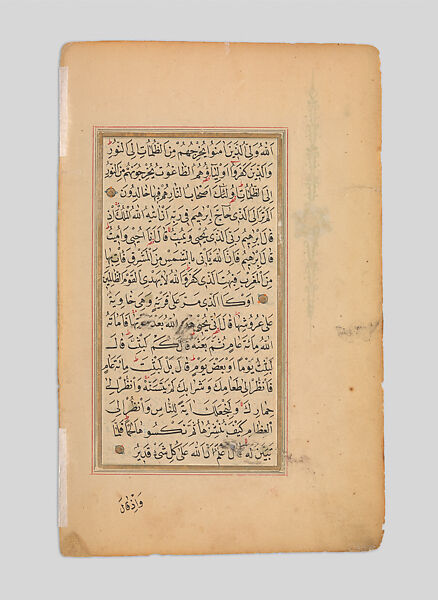 اَللّٰهُ وَلِيُّ الَّذِينَ اٰمَنُوا يُخْرِجُهُمْ مِنَ الظُّلُمَاتِ اِلَى النُّورِ
وَالَّذِينَ كَفَرُوا اَوْلِيَاؤُهُمُ الطَّاغُوتُ يُخْرِجُونَهُمْ مِنَ النُّورِ
اِلَى الظُّلُمَاتِ اُولٰئِكَ اَصْحَابُ النَّارِ هُمْ فِيهَا خَالِدُونَ
اَلَمْ تَرَ اِلَى الَّذِي حَاجَّ اِبْرٰهِيمَ فِي رَبِّهِ اَنْ اٰتٰيهُ اللّٰهُ الْمُلْكَ اِذْ
قَالَ اِبْرٰهِيمُ رَبِّيَ الَّذِي يُحْيِي وَيُمِيتُ قَالَ اَنَا اُحْيِي وَاُمِيتُ
قَالَ اِبْرٰهِيمُ فَاِنَّ اللّٰهَ يَأْتِي بِالشَّمْسِ مِنَ الْمَشْرِقِ فَأْتِ بِهَا
مِنَ الْمَغْرِبِ فَبُهِتَ الَّذِي كَفَرَ وَاللّٰهُ لَا يَهْدِي الْقَوْمَ الظَّالِمِينَ
اَوْ كَالَّذِي مَرَّ عَلٰى قَرْيَةٍ وَهِيَ خَاوِيَةٌ
عَلٰى عُرُوشِهَا قَالَ اَنّٰى يُحْيِي هٰذِهِ اللّٰهُ بَعْدَ مَوْتِهَا فَاَمَاتَهُ
اللّٰهُ مِائَةَ عَامٍ ثُمَّ بَعَثَهُ قَالَ كَمْ لَبِثْتَ قَالَ
لَبِثْتُ يَوْمًا اَوْ بَعْضَ يَوْمٍ قَالَ بَلْ لَبِثْتَ مِائَةَ عَامٍ
فَانْظُرْ اِلٰى طَعَامِكَ وَشَرَابِكَ لَمْ يَتَسَنَّهْ وَانْظُرْ اِلٰى
حِمَارِكَ وَلِنَجْعَلَكَ اٰيَةً لِلنَّاسِ وَانْظُرْ اِلَى
الْعِظَامِ كَيْفَ نُنْشِزُهَا ثُمَّ نَكْسُوهَا لَحْمًا فَلَمَّا
تَبَيَّنَ لَهُ قَالَ اَعْلَمُ اَنَّ اللّٰهَ عَلٰى كُلِّ شَيْءٍ قَدِيرٌ
وَاِذْ قَالَ